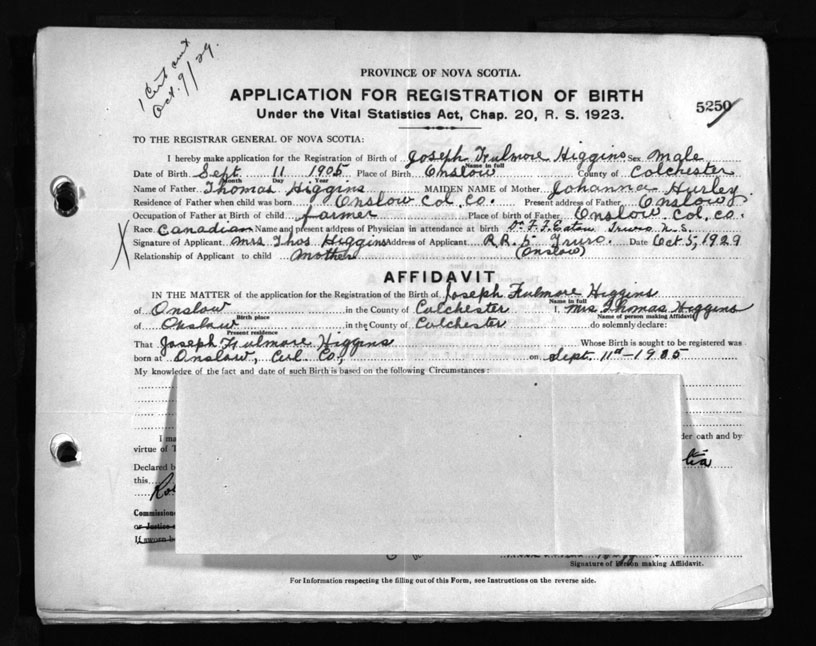 1 Cert out
Oct. 9/29.
PROVINCE OF NOVA SCOTIA.
APPLICATION FOR REGISTRATION OF BIRTH
5250
Under the Vital Statistics Act, Chap. 20, R. S. 1923.
TO THE REGISTRAR GENERAL OF NOVA SCOTIA:
I hereby make application for the Registration of Birth of Joseph Fulmore Higgins Sex Male
Name in full
Date of Birth Sept. 11 1905 Place of Birth Onslow County of Colchester
Month Day Year
Name of Father Thomas Higgins MAIDEN NAME of Mother Johanna Hurley
Residence of Father when child was born Onslow Col. Co. Present address of Father Onslow
Occupation of Father at Birth of child farmer Place of birth of Father Onslow Col. Co.
Race Canadian Name and present address of Physician in attendance at birth Dr F. F. Eaton Truro N.S.
Signature of Applicant Mrs Thos Higgins Address of Applicant R R. 5 Truro. Date Oct 5, 1929
Relationship of Applicant to child Mother (Onslow)
AFFIDAVIT
IN THE MATTER of the application for the Registration of the Birth of Joseph Fulmore Higgins
Name in full
of Onslow in the County of Colchester I, Mrs Thomas Higgins
Birth place Name of person making Affidavit
of Onslow in the County of Colchester do solemnly declare:
Present residence
That Joseph Fulmore Higgins Whose Birth is sought to be registered was
born at Onslow, Col. Co., on Sept. 11th - 1905
My knowledge of the fact and date of such Birth is based on the following Circumstances:
I ma der oath and by
virtue of T
Declared b tia
this
Commission
or Justice
If sworn b
Signature of Person making Affidavit.
For Information respecting the filling out of this Form, see Instructions on the reverse side.